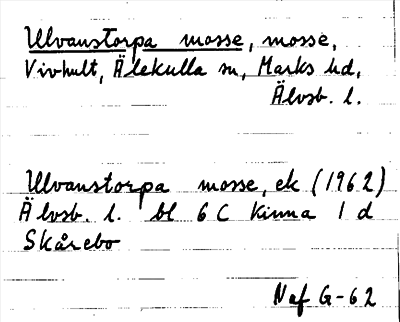 Ulvanstorpa mosse, mosse,
Vivhult, Älekulla sn, Marks hd,
Älvsb. l.
Ulvanstorpa mosse, ek (1962)
Älvsb. l. bl 6 C Kinna 1 d
Skårebo
Naf G-62